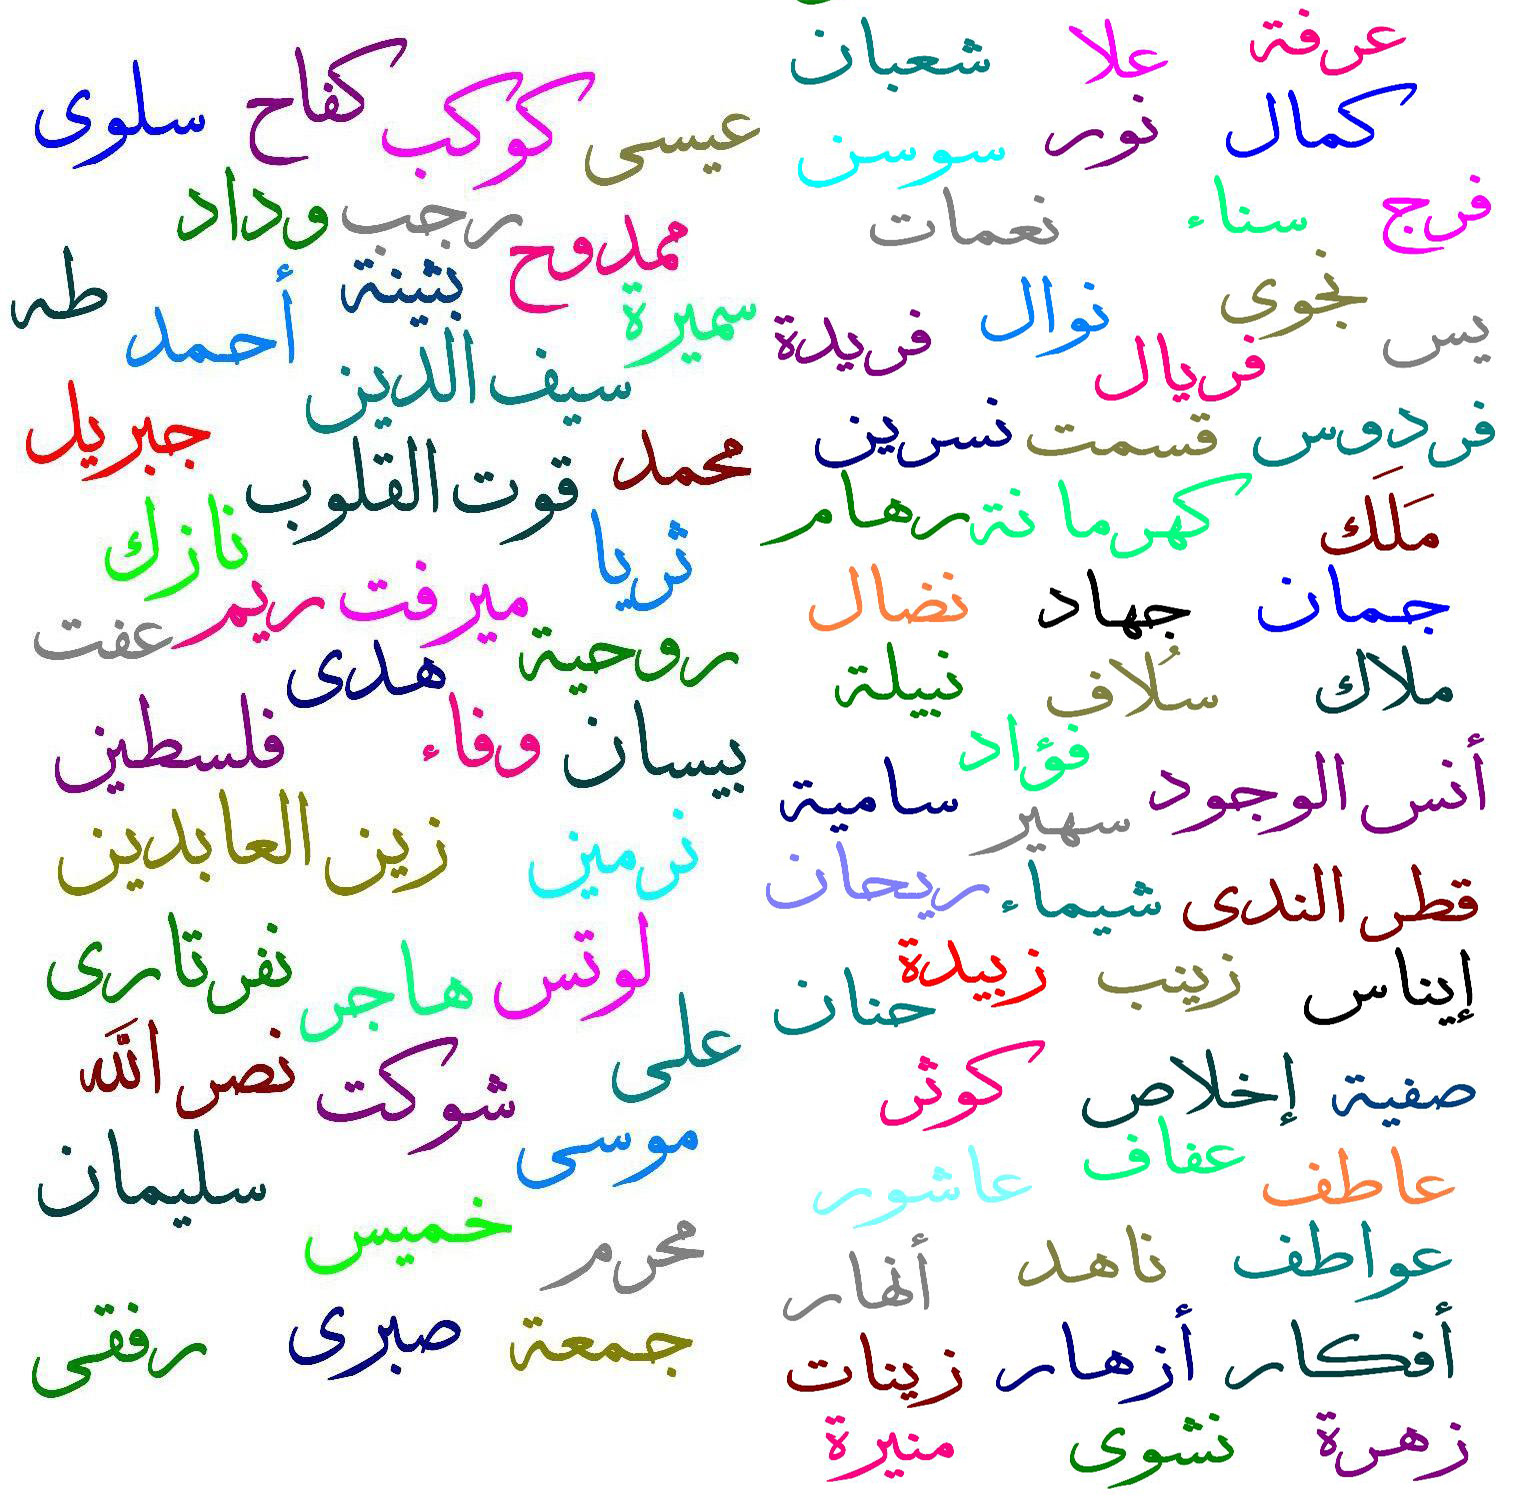 عرفة علا شعبان
كمال نور سوسن
فرج سناء نعمات
يس نجوى نوال فريدة
فريال
فردوس قسمت نسرين
مَلَك كهرمانة رهام
جمان جهاد نضال
ملاك سُلاف نبيلة
فؤاد
أنس الوجود سهير سامية
قطر الندى شيماء ريحان
إيناس زينب زبيدة حنان
صفية إخلاص كوثر
عاطف عفاف عاشور
عواطف ناهد أنهار
أفكار أزهار زينات
زهرة نشوى منيرة
عيسى كوكب كفاح سلوى
ممدوح رجب وداد
سميرة بثينة أحمد طه
سيف الدين
محمد قوت القلوب جبريل
ثريا نازك
ميرفت ريم عفت
روحية هدى
بيسان وفاء فلسطين
نرمين زين العابدين
لوتس هاجر نفرتارى
على شوكت نصر الله
موسى سليمان
محرم خميس
جمعة صبرى رفقى